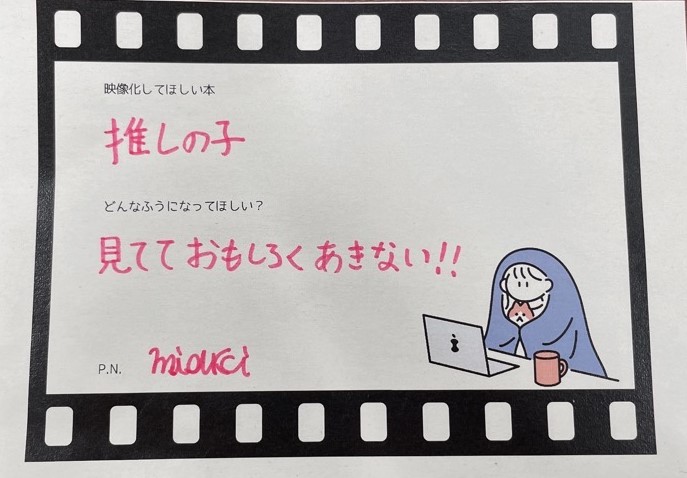 映像化してほしい本
推しの子
どんなふうになってほしい？
見てておもしろくあきない!!
P.N. miouci